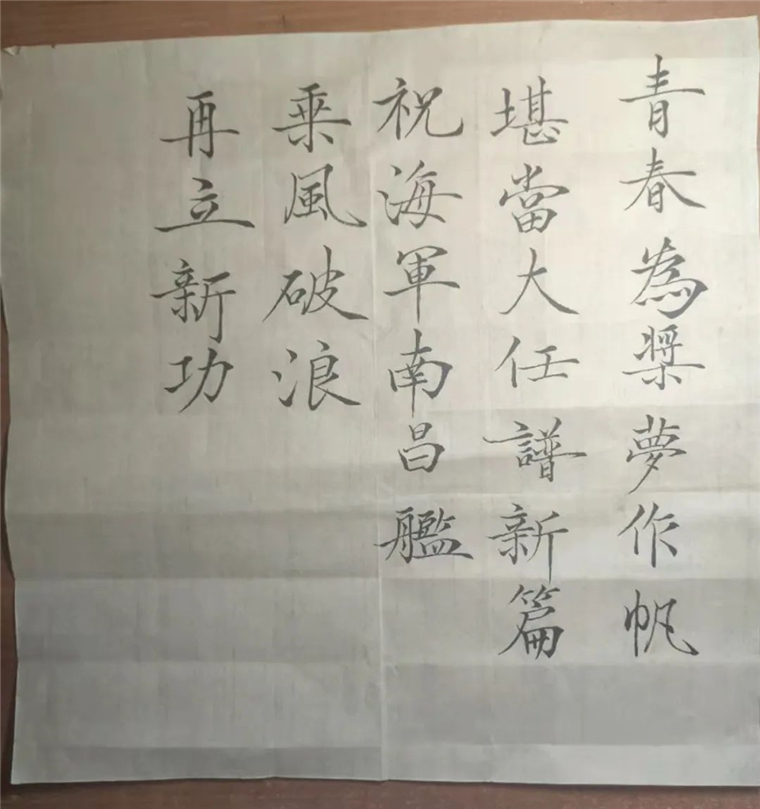 青春為槳夢作帆
堪當大任譜新篇
祝海軍南昌艦
乘風破浪
再立新功